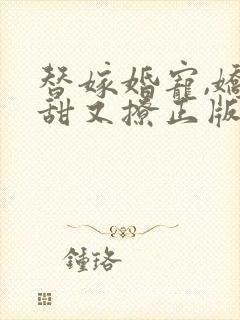 替嫁婚寵,嬌
甜又撩正版
鍾珞